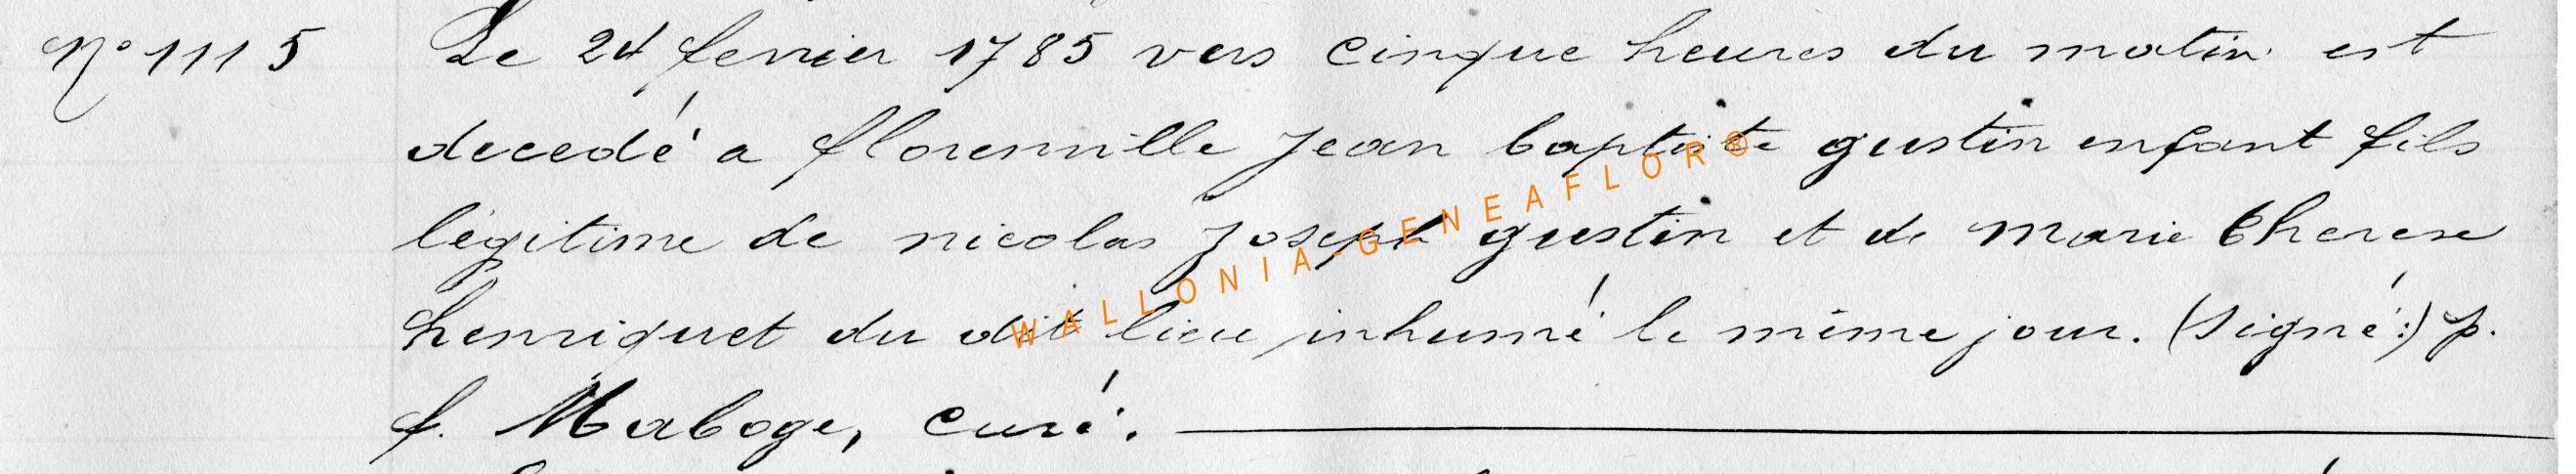 N° 1115 Le 24 fevrier 1785 vers cinque heures du matin est
decedé a florenville Jean baptiste gustin enfant fils
légitime de nicolas Joseph gustin et de marie therese
henriquet du dit lieu inhumé le même jour. (Signé:) p.
f. Maboge, curé.
WALLONIA-GENEAFLOR®